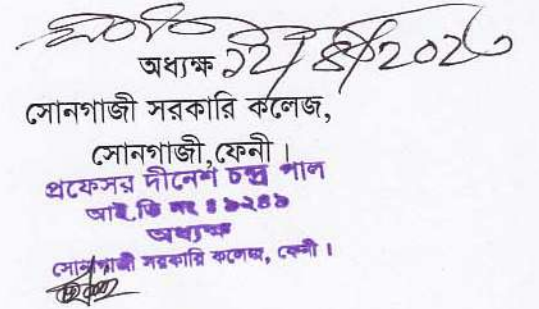 অধ্যক্ষ
সোনগাজী সরকারি কলেজ,
সোনগাজী,ফেনী ।
প্রফেসর দীনেশ চন্দ্র পাল
আই.ডি নং
অধ্যক্ষ
সোনাগাজী সরকারি কলেজ, ফেনী ।